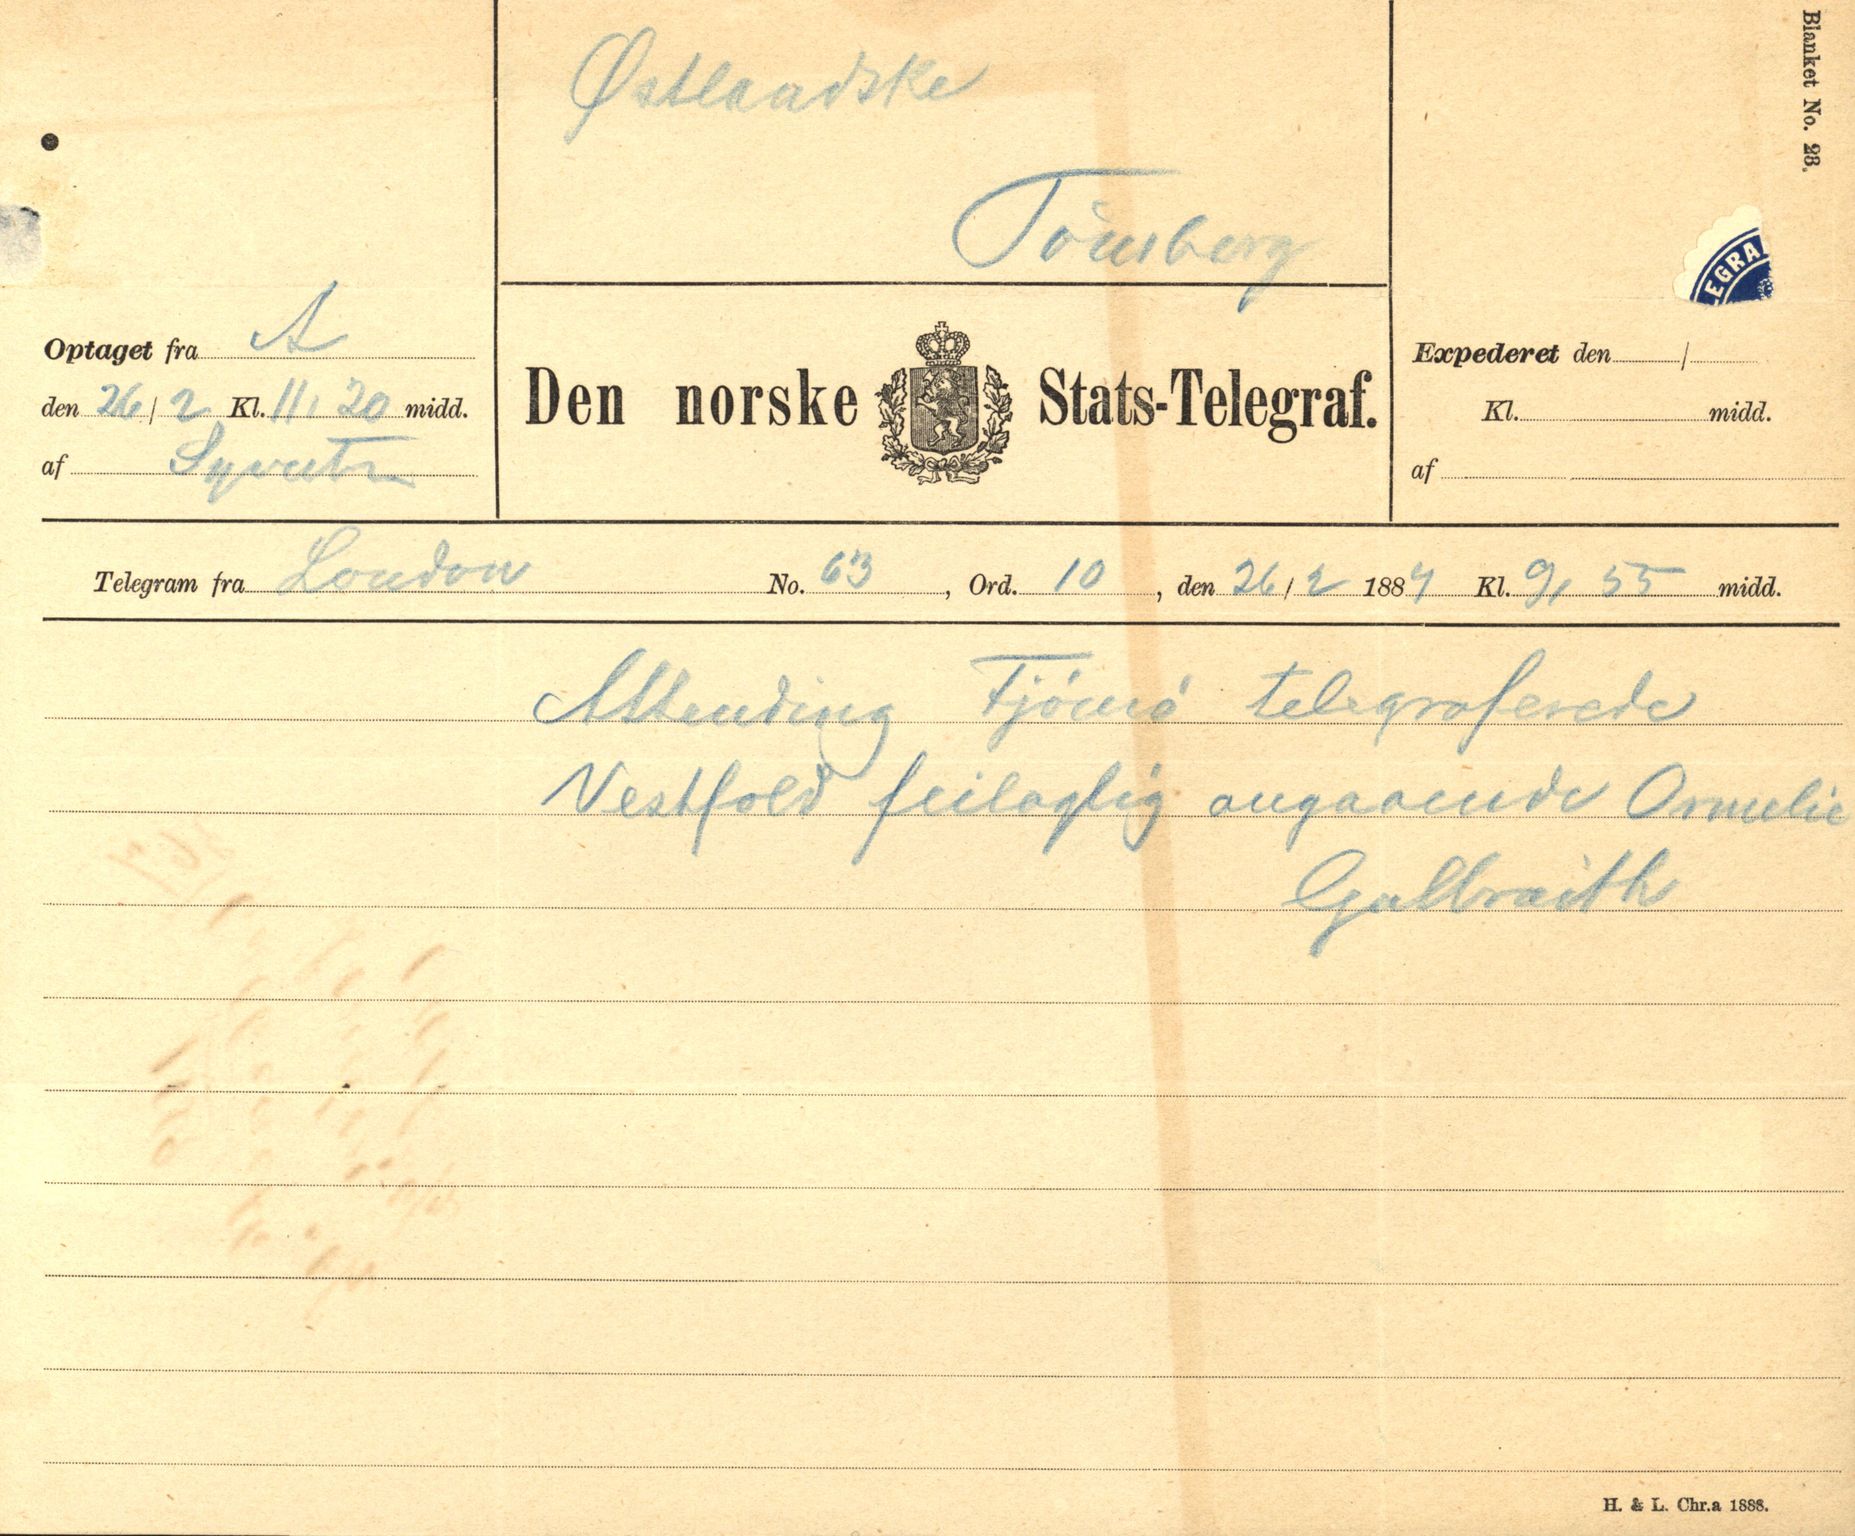 Blanket No. 23.
Østlandske
Tönsberg
Optaget fra A
den 26/2 Kl. 11,20 midd.
af
Den norske Stats-Telegraf.
EGRA
Expederet den /
Kl. midd.
af
Telegram fra London No. 63, Ord. 10, den 26/2 1889 Kl. 9,55 midd.
Attending Tjömö telegraferede
Vestfold feilagtig angaaende Ormelie
Galbraith
H. & L. Chr.a 1888.